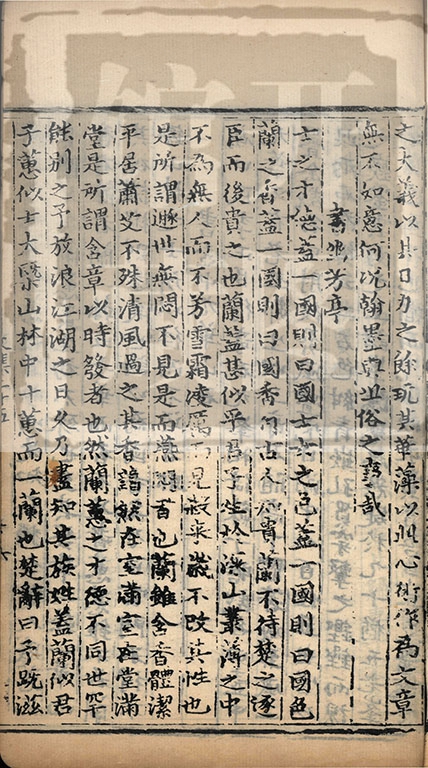 之大義以其日力之餘玩其華藻以此心術作為文章
無不如意何況翰墨與世俗之事哉
書幽芳亭
士之才德蓋一國則曰國士女之色蓋一國則曰國色
蘭之香蓋一國則曰國香自古人知貴蘭不待楚之逐
臣而後貴之也蘭蓋甚似乎君子生於深山叢薄之中
不為無人而不芳雪霜凌厲而見殺來歲不改其性也
是所謂遯世無悶不見是而無悶者也蘭雖含香體潔
平居蕭艾不殊清風過之其香藹然在室滿室在堂滿
堂是所謂含章以時發者也然蘭蕙之才德不同世罕
能别之予放浪江湖之日久乃盡知其族姓蓋蘭似君
子蕙似士大槩山林中十蕙而一蘭也楚辭曰予既滋